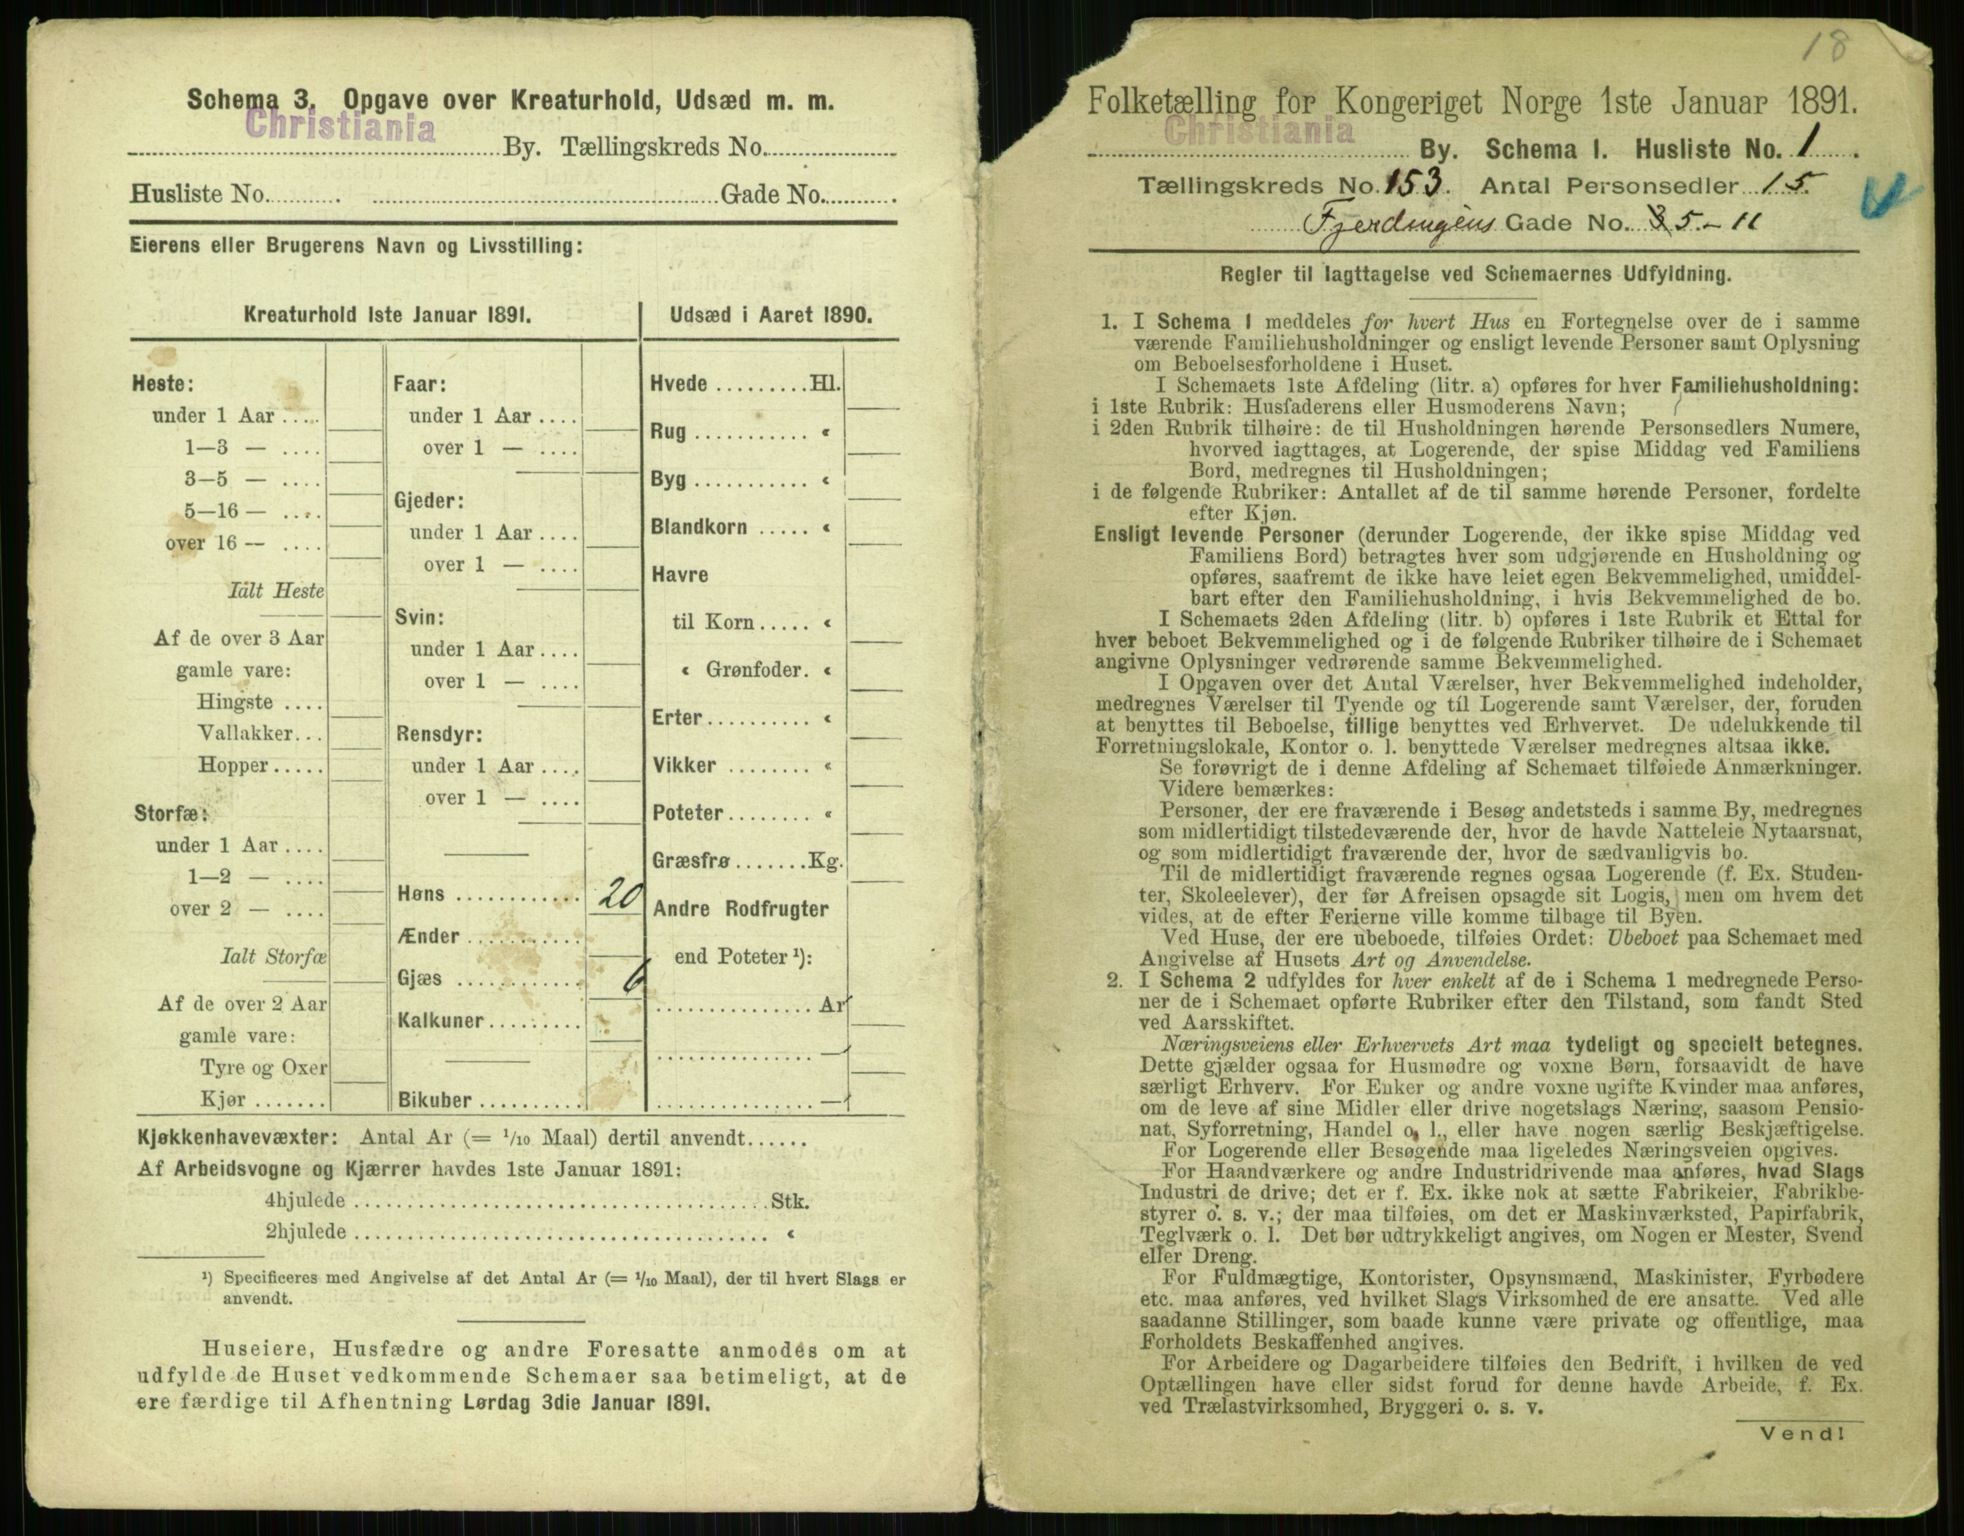 Schema 3. Opgave over Kreaturhold, Udsæd m. m.
Christiania
By. Tællingskreds No.
Husliste No. Gade No.
Eierens eller Brugerens Navn og Livsstilling:
Kreaturhold 1ste Januar 1891.
Heste:
under 1 Aar ....
1—3 — ....
3—5 — ....
5—16 — ....
over 16 — ....
Ialt Heste
Af de over 3 Aar
gamle vare:
Hingste ....
Vallakker...
Hopper.....
Storfæ:
under 1 Aar ....
1—2 — ....
over 2 — ....
Ialt Storfæ
Af de over 2 Aar
gamle vare:
Tyre og Oxer
Kjør .......
Faar:
under 1 Aar ....
over 1 — ....
Gjeder:
under 1 Aar ....
over 1 — ....
Svin:
under 1 Aar ....
over 1 — ....
Rensdyr:
under 1 Aar ....
over 1 — ....
Høns ............ 20
Ænder ...........
Gjæs ............ 6
Kalkuner.........
Bikuber ..........
Udsæd i Aaret 1890.
Hvede .........Hl.
Rug ........... «
Byg ........... «
Blandkorn ..... «
Havre
til Korn ..... «
« Grønfoder. «
Erter.......... «
Vikker ........ «
Poteter........ «
Græsfrø .......Kg.
Andre Rodfrugter
end Poteter ¹):
............... Ar
............... —
............... —
Kjøkkenhavevæxter: Antal Ar (= 1/10 Maal) dertil anvendt......
Af Arbeidsvogne og Kjærrer havdes 1ste Januar 1891:
4hjulede ....................................Stk.
2hjulede .................................... «
¹) Specificeres med Angivelse af det Antal Ar (= 1/10 Maal), der til hvert Slags er
anvendt.
Huseiere, Husfædre og andre Foresatte anmodes om at
udfylde de Huset vedkommende Schemaer saa betimeligt, at de
ere færdige til Afhentning Lørdag 3die Januar 1891.
18
Folketælling for Kongeriget Norge 1ste Januar 1891.
Christiania
By. Schema I. Husliste No. 1
Tællingskreds No. 153. Antal Personsedler 15.
Fjerdingens Gade No. 3 5.-11
Regler til Iagttagelse ved Schemaernes Udfyldning.
1. I Schema 1 meddeles for hvert Hus en Fortegnelse over de i samme
værende Familiehusholdninger og ensligt levende Personer samt Oplysning
om Beboelsesforholdene i Huset.
I Schemaets 1ste Afdeling (litr. a) opføres for hver Familiehusholdning:
i 1ste Rubrik: Husfaderens eller Husmoderens Navn;
i 2den Rubrik tilhøire: de til Husholdningen hørende Personsedlers Numere,
hvorved iagttages, at Logerende, der spise Middag ved Familiens
Bord, medregnes til Husholdningen;
i de følgende Rubriker: Antallet af de til samme hørende Personer, fordelte
efter Kjøn.
Ensligt levende Personer (derunder Logerende, der ikke spise Middag ved
Familiens Bord) betragtes hver som udgjørende en Husholdning og
opføres, saafremt de ikke have leiet egen Bekvemmelighed, umiddel-
bart efter den Familiehusholdning, i hvis Bekvemmelighed de bo.
I Schemaets 2den Afdeling (litr. b) opføres i 1ste Rubrik et Ettal for
hver beboet Bekvemmelighed og i de følgende Rubriker tilhøire de i Schemaet
angivne Oplysninger vedrørende samme Bekvemmelighed.
I Opgaven over det Antal Værelser, hver Bekvemmelighed indeholder,
medregnes Værelser til Tyende og til Logerende samt Værelser, der, foruden
at benyttes til Beboelse, tillige benyttes ved Erhvervet. De udelukkende til
Forretningslokale, Kontor o. l. benyttede Værelser medregnes altsaa ikke.
Se forøvrigt de i denne Afdeling af Schemaet tilføiede Anmærkninger.
Videre bemærkes:
Personer, der ere fraværende i Besøg andetsteds i samme By, medregnes
som midlertidigt tilstedeværende der, hvor de havde Natteleie Nytaarsnat,
og som midlertidigt fraværende der, hvor de sædvanligvis bo.
Til de midlertidigt fraværende regnes ogsaa Logerende (f. Ex. Studen-
ter, Skoleelever), der før Afreisen opsagde sit Logis, men om hvem det
vides, at de efter Ferierne ville komme tilbage til Byen.
Ved Huse, der ere ubeboede, tilføies Ordet: Ubeboet paa Schemaet med
Angivelse af Husets Art og Anvendelse.
2. I Schema 2 udfyldes for hver enkelt af de i Schema 1 medregnede Perso-
ner de i Schemaet opførte Rubriker efter den Tilstand, som fandt Sted
ved Aarsskiftet.
Næringsveiens eller Erhvervets Art maa tydeligt og specielt betegnes.
Dette gjælder ogsaa for Husmødre og voxne Børn, forsaavidt de have
særligt Erhverv. For Enker og andre voxne ugifte Kvinder maa anføres,
om de leve af sine Midler eller drive nogetslags Næring, saasom Pensio-
nat, Syforretning, Handel o. l., eller have nogen særlig Beskjæftigelse.
For Logerende eller Besøgende maa ligeledes Næringsveien opgives.
For Haandværkere og andre Industridrivende maa anføres, hvad Slags
Industri de drive; det er f. Ex. ikke nok at sætte Fabrikeier, Fabrikbe-
styrer o. s. v.; der maa tilføies, om det er Maskinværksted, Papirfabrik,
Teglværk o. l. Det bør udtrykkeligt angives, om Nogen er Mester, Svend
eller Dreng.
For Fuldmægtige, Kontorister, Opsynsmænd, Maskinister, Fyrbødere
etc. maa anføres, ved hvilket Slags Virksomhed de ere ansatte. Ved alle
saadanne Stillinger, som baade kunne være private og offentlige, maa
Forholdets Beskaffenhed angives.
For Arbeidere og Dagarbeidere tilføies den Bedrift, i hvilken de ved
Optællingen have eller sidst forud for denne havde Arbeide, f. Ex.
ved Trælastvirksomhed, Bryggeri o. s. v.
Vend!